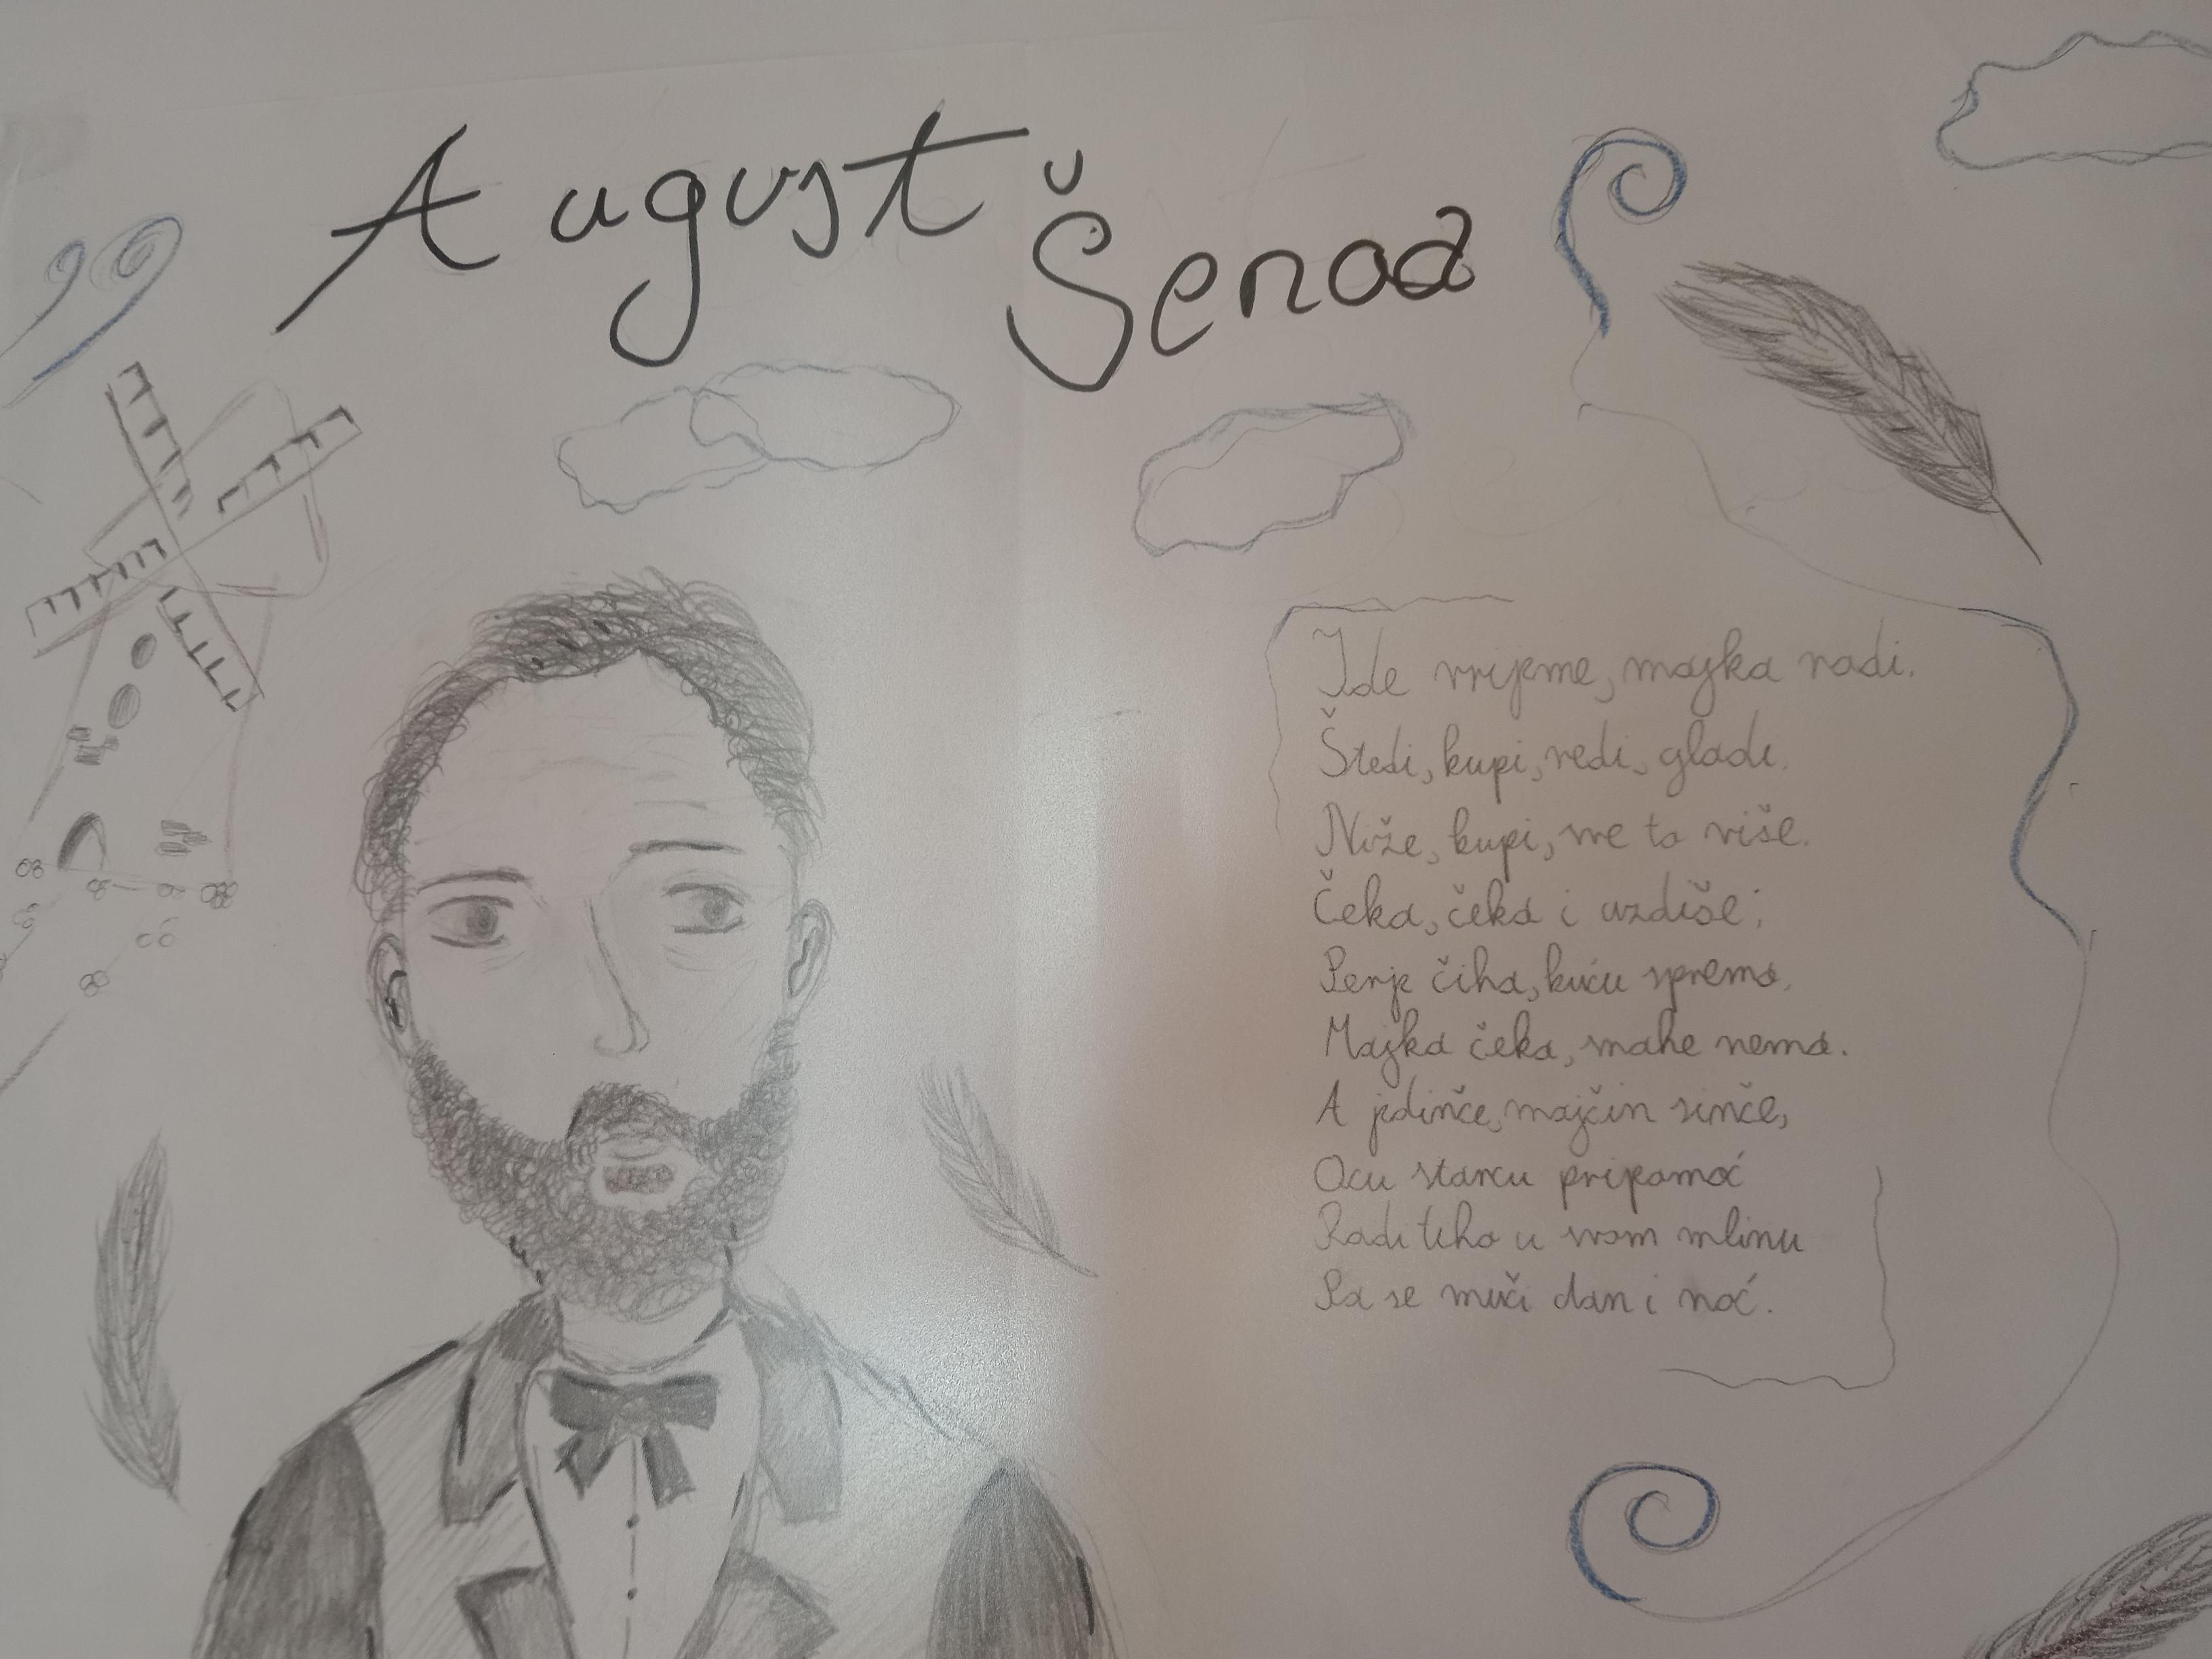 August Šenoa
Ide vrijeme, majka radi.
Štedi, kupi, redi, gladi.
Niže, kupi, sve to više.
Čeka, čeka i uzdiše;
Perje čiha, kuću sprema.
Majka čeka, snahe nema.
A jedinče, majčin sinče,
Ocu starcu pripomoć
Radi tiho u svom mlinu
Pa se muči dan i noć.